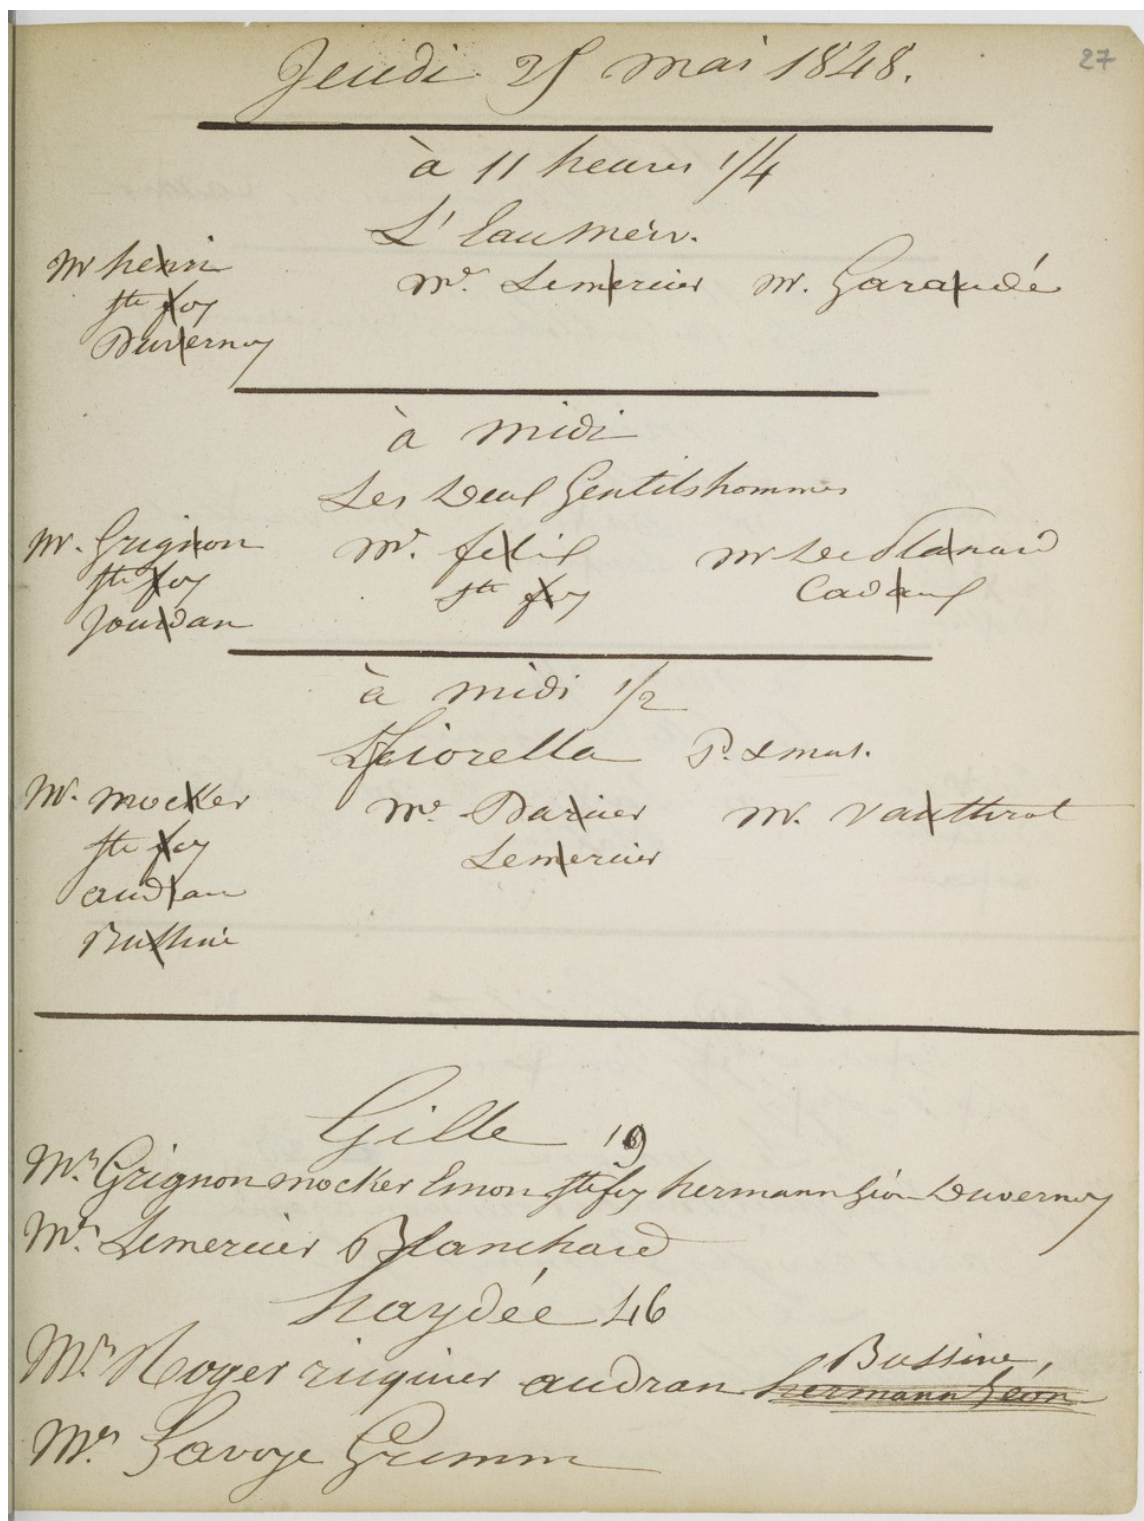 27
Jeudi 25 mai 1848.
à 11 heures 1/4
L'Eau Merv.
Mr henri
Ste foy
Duvernoy
Me. Lemercier Mr. Garaudé
à midi
Les Deux Gentilshommes
Mr. Grignon
Ste foy
Jourdan
Me. felix
Ste foy
Mr De Planard
Cadaux
à midi 1/2
Fiorella P. & mus.
Mr. mocker
Ste foy
audran
Bussine
Me. Darcier
Lemercier
Mr. Vauthrot
Gille 19
Mrs Grignon mocker Emon Ste foy hermann Léon Duvernoy
Mes Lemercier Blanchard
haydée 46
Bussine,
Mrs Roger ricquier audran hermann Léon
Mes Lavoye Grimm